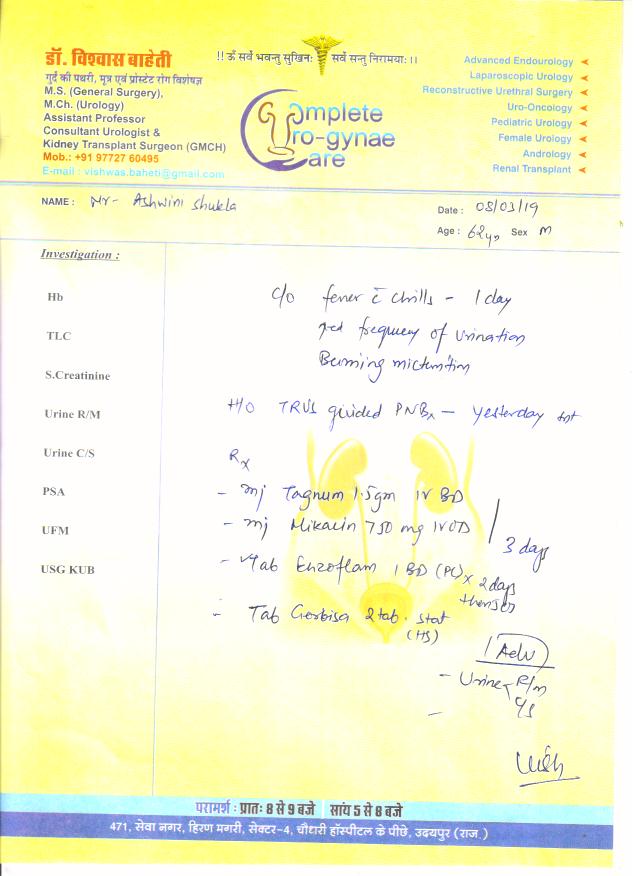 डॉ. विश्वास बाहेती
गुर्दे की पथरी, मूत्र एवं प्रोस्टेट रोग विशेषज्ञ
M.S. (General Surgery),
M.Ch. (Urology)
Assistant Professor
Consultant Urologist &
Kidney Transplant Surgeon (GMCH)
Mob.: +91 97727 60495
E-mail : vishwas.baheti@gmail.com
!! ॐ सर्वे भवन्तु सुखिनः सर्वे सन्तु निरामयाः ।।
Complete
Uro-gynae
Care
Advanced Endourology
Laparoscopic Urology
Reconstructive Urethral Surgery
Uro-Oncology
Pediatric Urology
Female Urology
Andrology
Renal Transplant
NAME : Mr- Ashwini Shukla
Date : 05/03/19
Age : 62yr Sex M
Investigation :
Hb
TLC
S.Creatinine
Urine R/M
Urine C/S
PSA
UFM
USG KUB
C/O fever c̄ chills - 1 day
↑ed frequency of urination
Burning micturition
H/O TRUS guided PNBx - yesterday
Rx
- Inj Tagnum 1.5gm IV BD
- Inj Mikacin 750 mg IV OD
3 days
- Tab Enzoflam 1 BD (PC) x 2 days
then SOS
- Tab Corbisa 2 tab. stat
(HS)
Adv
- Urine R/m
C/s
-
परामर्श : प्रातः 8 से 9 बजे | सायं 5 से 8 बजे
471, सेवा नगर, हिरण मगरी, सेक्टर-4, चौधरी हॉस्पीटल के पीछे, उदयपुर (राज.)